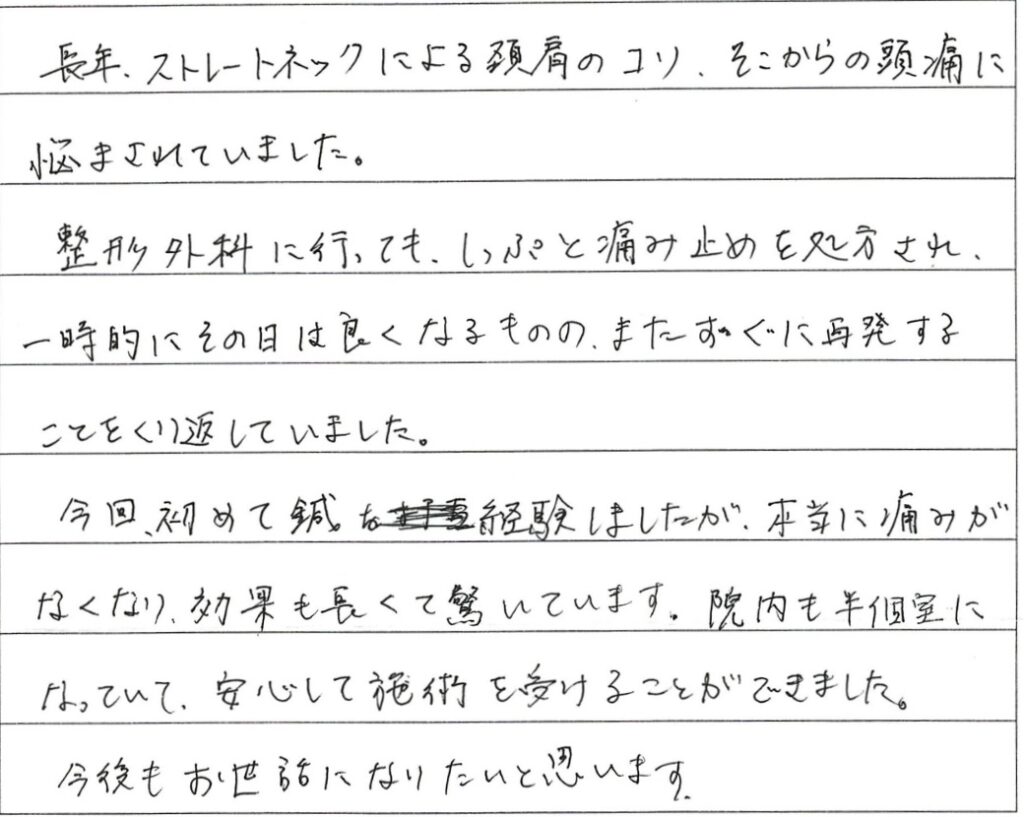 長年、ストレートネックによる頚肩のコリ、そこからの頭痛に
悩まされていました。
整形外科に行っても、しっぷと痛み止めを処方され、
一時的にその日は良くなるものの、またすぐに再発する
ことをくり返していました。
今回、初めて鍼を経験しましたが、本当に痛みが
なくなり、効果も長くて驚いています。院内も半個室に
なっていて、安心して施術を受けることができました。
今後もお世話になりたいと思います。